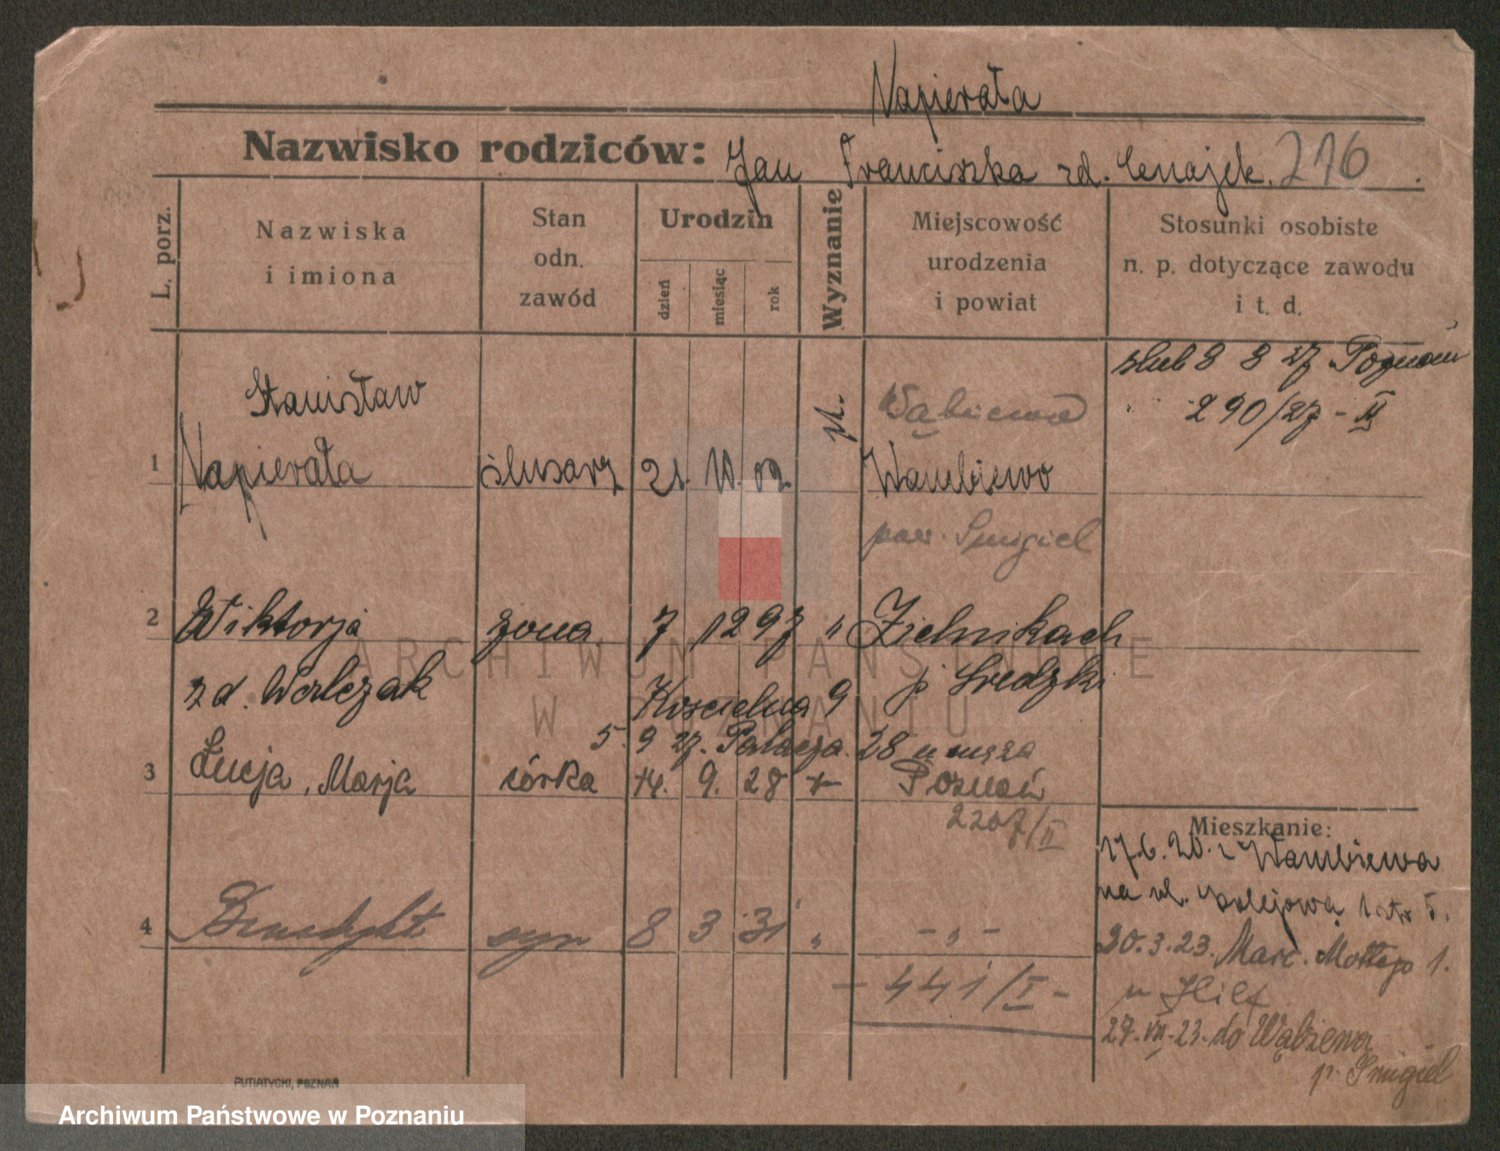 Napierała
Nazwisko rodziców: Jan Franciszka zd. 216
L. porz.
Nazwiska i imiona
Stan odn. zawód
Urodzin
dzień miesiąc rok
Wyznanie
Miejscowość urodzenia i powiat
Stosunki osobiste n. p. dotyczące zawodu i t. d.
ślub 8 8 27 Poznań
290/27 - II
Stanisław
Wąbiewo
1 Napierała ślusarz 21. 02. Wambiewo
pow. Śmigiel
2 Wiktorja żona 7 12 97 " Zielnikach
zd. Walczak p Średzki
Kościelna 9
5. 9 27. Palacza 28 u męża
3 Łucja, Marja córka 14. 9. 28 Poznań
2207/II
Mieszkanie:
17.6.20. z Wambiewa
na ul. Kolejową
4 Benedykt syn 8 3 31 " - " -
20.3.23. Marc. Mottego 1.
- 441/I -
u Hilf
27.VII.23. do Wąbiewa
p. Śmigiel
PUTIATYCKI, POZNAŃ
ARCHIWUM PAŃSTWOWE
W POZNANIU
Archiwum Państwowe w Poznaniu